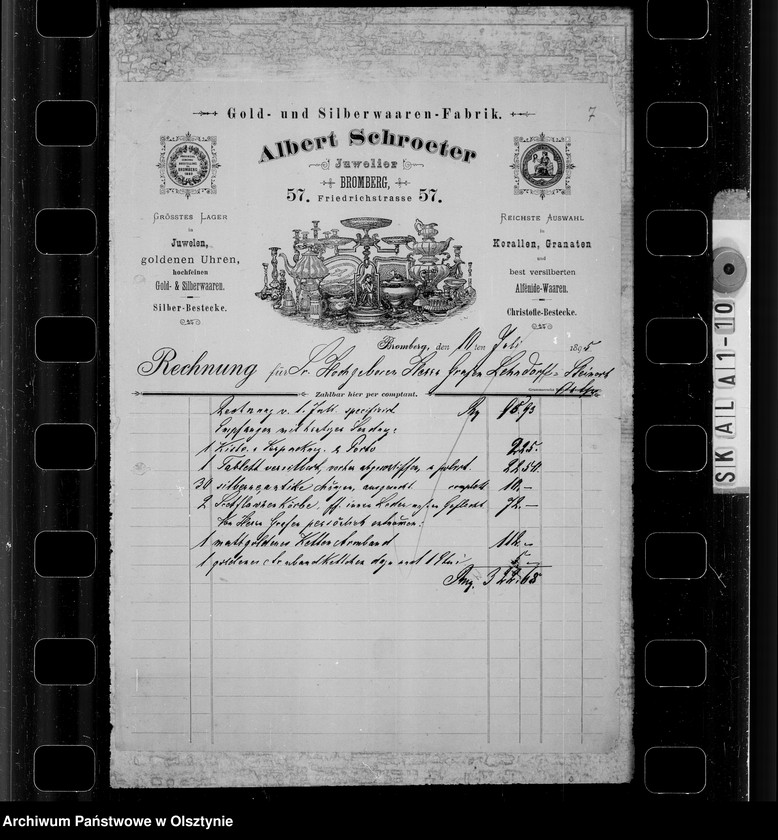 7
Gold- und Silberwaaren-Fabrik.
Albert Schroeter
Juwelier
BROMBERG,
57. Friedrichstrasse 57.
GRÖSSTES LAGER
in
Juwelen,
goldenen Uhren,
hochfeinen
Gold- & Silberwaaren.
Silber-Bestecke.
REICHSTE AUSWAHL
in
Korallen, Granaten
und
best versilberten
Alfénide-Waaren.
Christofle-Bestecke.
Bromberg, den 10ten Juli 1895
Rechnung für Sr. Hochgeboren Herrn Grafen Lehndorff-Steinort
Ostpr.
Zahlbar hier per comptant.
Rechnung v. 1. Juli specificirt 95,93
Empfangen mit heutiger Sendung:
1 Kiste, Verpackung & Porto 2 25.
1 Tablett versilbert, 22 50.
30 silberne antike complett 10.-
2 72.-
Von Herrn Grafen persönlich entnommen:
1 mattgoldenes Ketten Armband 114.-
1 goldenes Armbandkettchen dazu und 1 Etui 5.-
SKALA 1-10
Archiwum Państwowe w Olsztynie